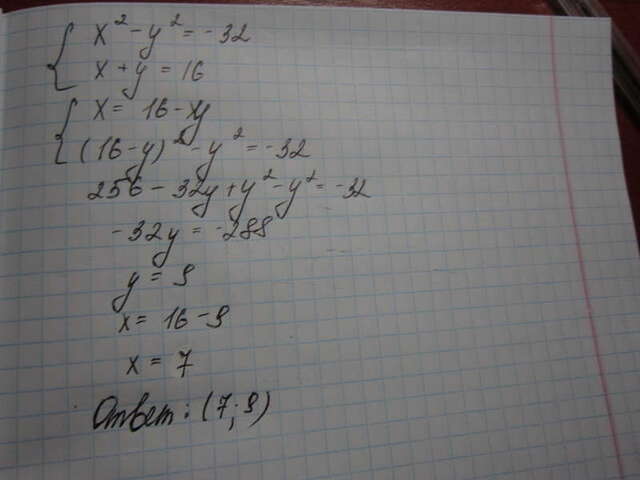 { x² - y² = -32
x + y = 16
{ x = 16 - y
(16 - y)² - y² = -32
256 - 32y + y² - y² = -32
-32y = -288
y = 9
x = 16 - 9
x = 7
Ответ: (7; 9)